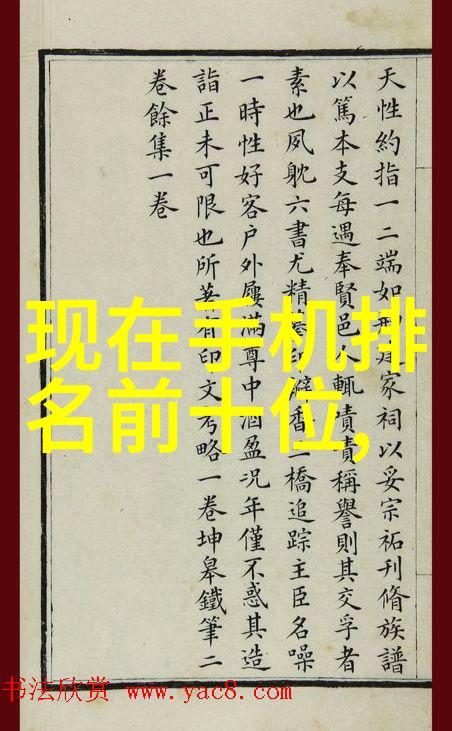 天性約指一二端如家祠以妥宗祏刊脩族譜
以篤本支每遇奉賢邑人輒嘖嘖稱譽則其交孚者
素也夙躭六書尤精印香二橋追踪主臣名噪
一時性好客户外屨滿尊中酒盈况年僅不惑其造
詣正未可限也所著有印文考略一卷坤皋鐵筆二
卷餘集一卷
现在手机排
名前十位,
书法欣赏 www.yac8.com